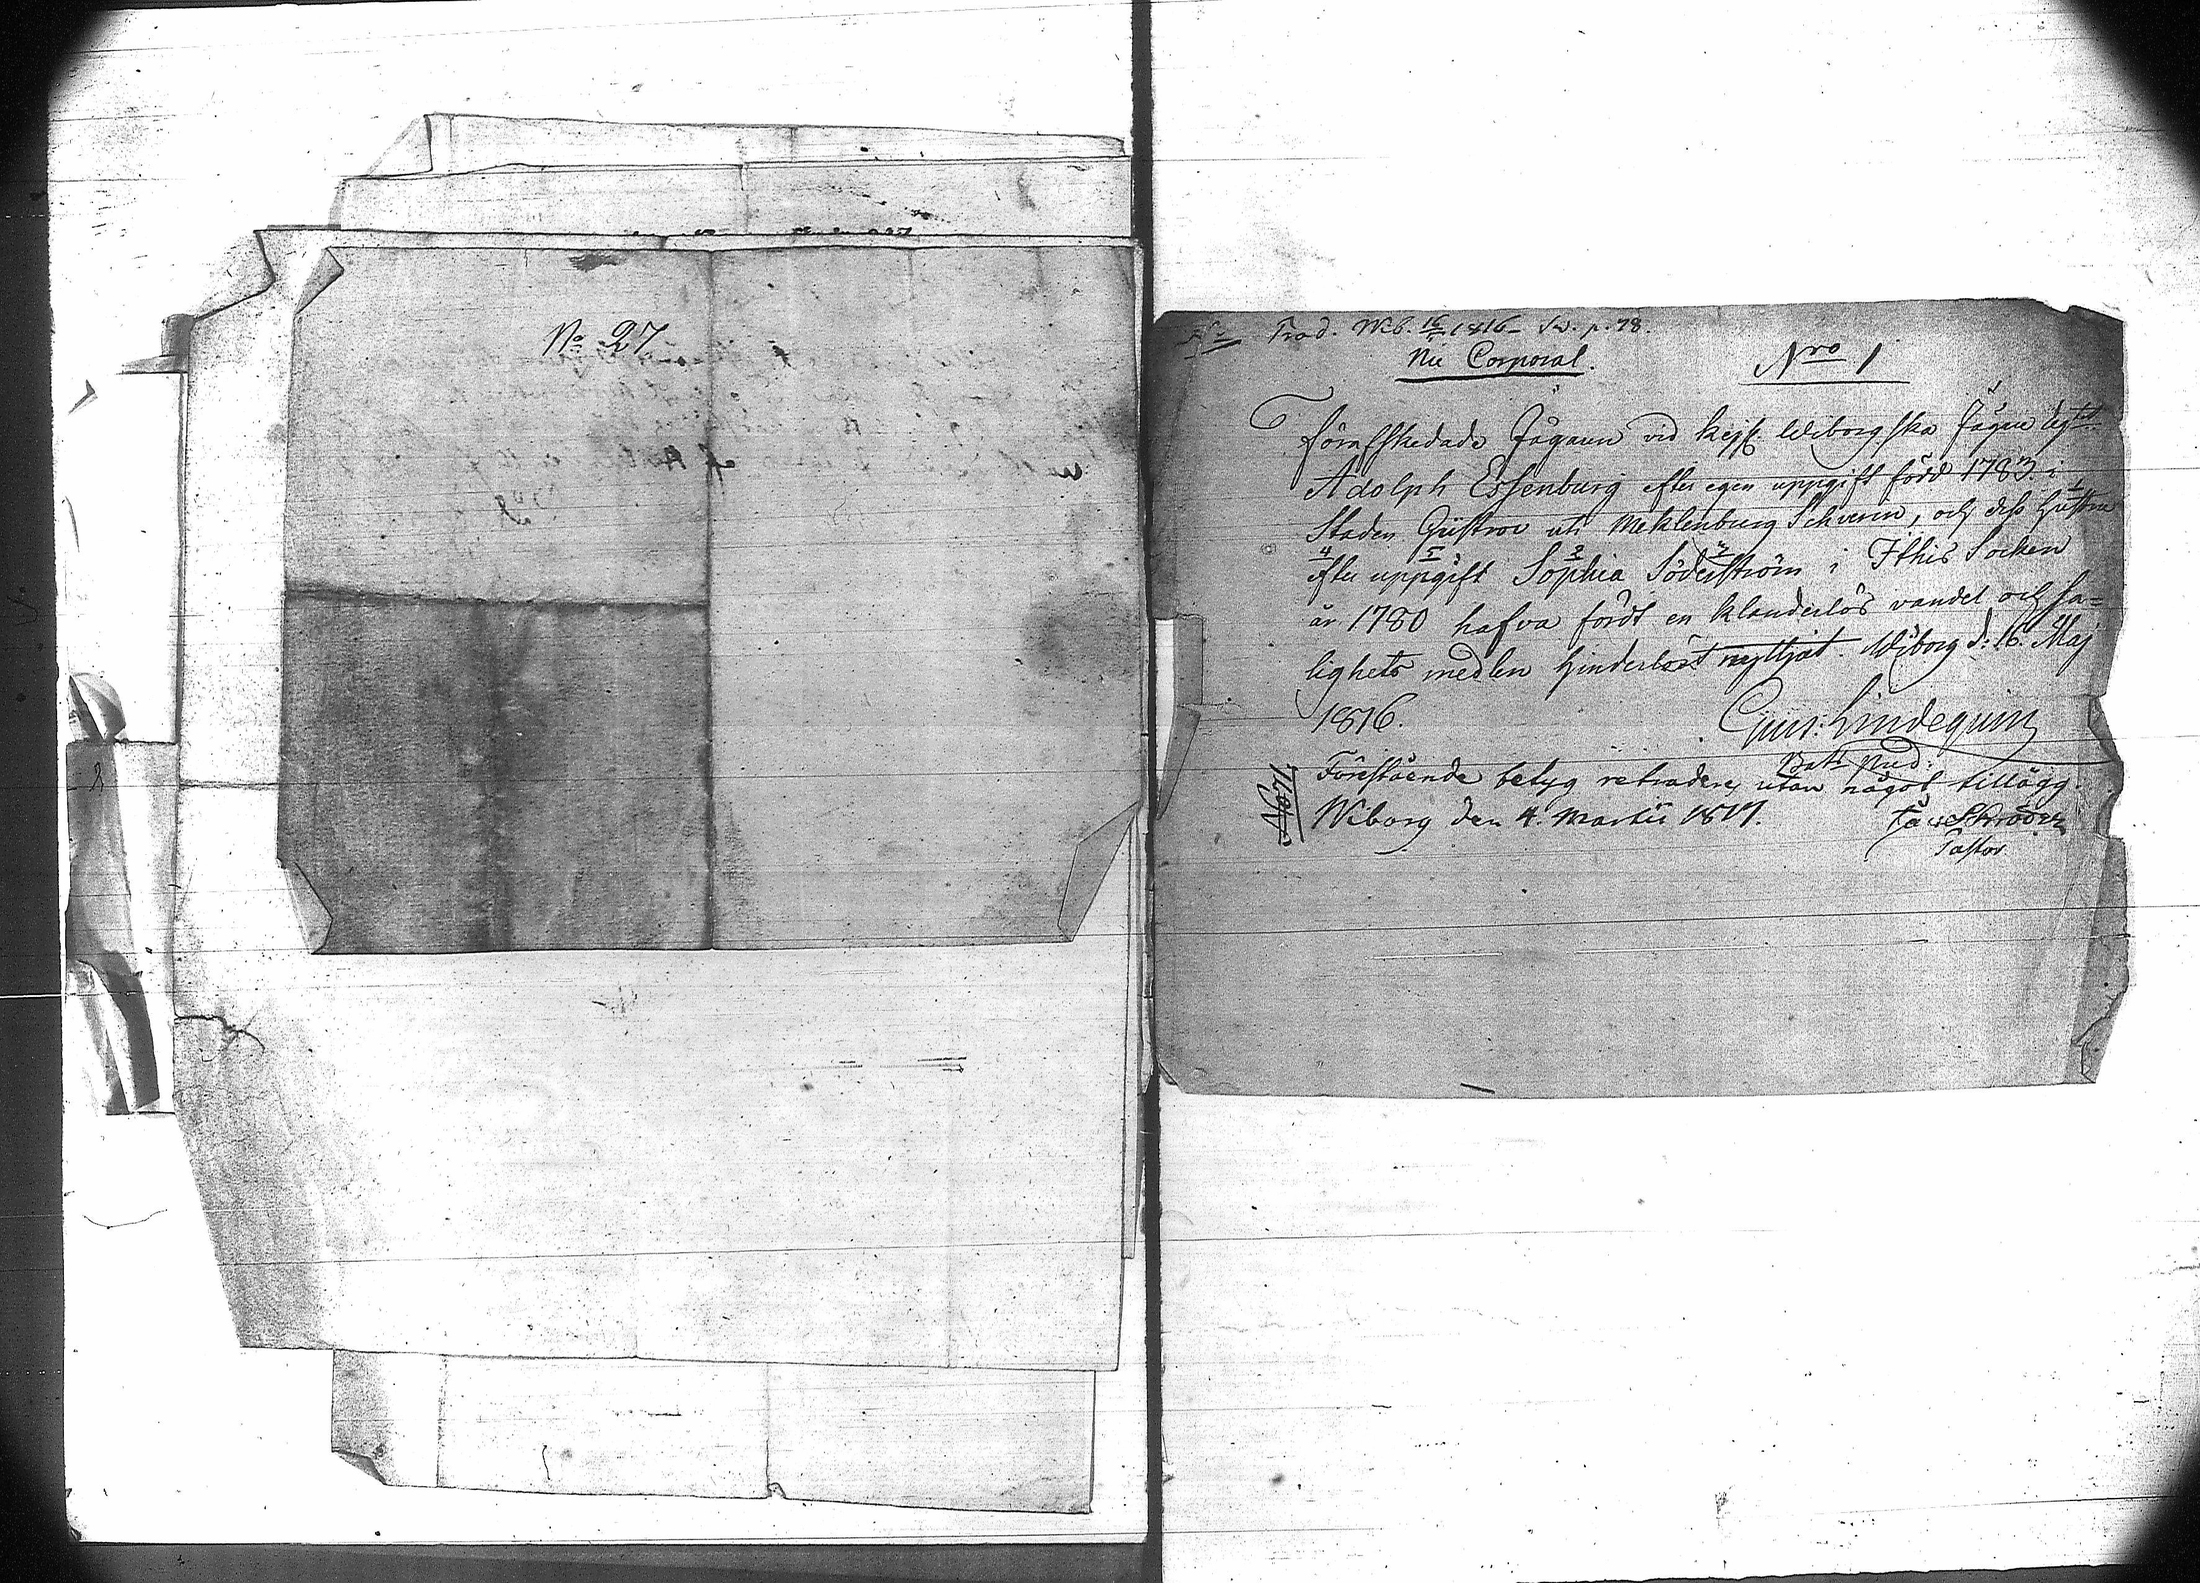 No 27
Trad. Wib. 16/5 1816 - Sv. p. 78.
Nu Corporal.
Nro 1
Förafskedade Jägaren vid Kejs. Wiborgska Jägare Regt.
Adolph Essenburg efter egen uppgift född 1783. i
Staden Güstrow uti Meklenburg Schverin, och dess hustru
efter uppgift Sophia Söderström i Ithis Socken
år 1780 hafva fördt en klanderlös vandel och sa=
lighets medlen hinderlöst nyttjat. Wiborg d: 16. Maj
1816.
Gust: Lindequist
Bat: Pred:
No 71.
Förestående betyg retraderas utan något tillägg.
Wiborg den 4. Martii 1817.
Schröder
Pastor